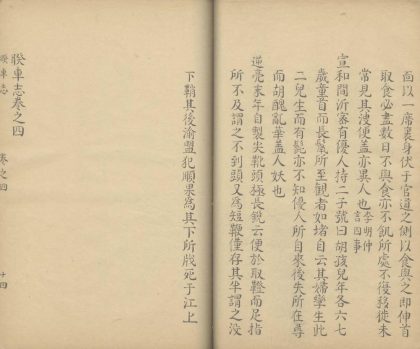 面以一席裹身伏于官道之側以食與之即伸首
取食必盡數日不與食亦不飢所處不復移徙未
常見其溲便蓋亦異人也李明仲言四事
宣和間沂密有優人持二子號曰胡孩兒年各六七
歲童首而長髯所至觀者如堵自云其婦孿生此
二兒生而有髭亦不知優人所自來後失所在尋
而胡醜亂華蓋人妖也
逆亮末年自製尖靴頭極長銳云便於取鐙而足指
所不及謂之不到頭又為短鞭僅存其半謂之沒
下鞘其後渝盟犯順果為其下所戕死于江上
睽車志卷之四
睽車志
卷之四
十四